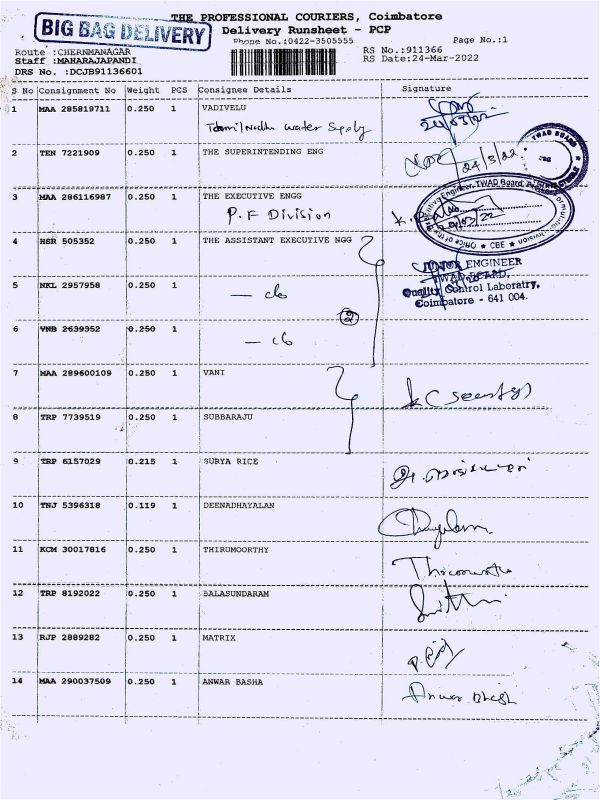 BIG BAG DELIVERY
THE PROFESSIONAL COURIERS, Coimbatore
Delivery Runsheet - PCP
Phone No.:0422-3505555
Page No.:1
Route :CHERNMANAGAR
Staff :MAHARAJAPANDI
DRS No. :DCJB91136601
RS No.:911366
RS Date:24-Mar-2022
S No Consignment No Weight PCS Consignee Details Signature
1 MAA 285819711 0.250 1 VADIVELU
Tamil Nadu water Supply
24/03/22
2 TEN 7221909 0.250 1 THE SUPERINTENDING ENG
24/3/22
TWAD BOARD
CBE
3 MAA 286116987 0.250 1 THE EXECUTIVE ENGG
P.F Division
24/03/22
Office of the Executive Engineer, TWAD Board,
Division ★ CBE ★
4 HSR 505352 0.250 1 THE ASSISTANT EXECUTIVE NGG
JUNIOR ENGINEER
TWAD BOARD,
Quality Control Laboratry,
Coimbatore - 641 004.
5 NKL 2957958 0.250 1
2
6 VNB 2639352 0.250 1
7 MAA 289600109 0.250 1 VANI
8 TRP 7739519 0.250 1 SUBBARAJU
9 TRP 6157029 0.215 1 SURYA RICE
10 TNJ 5396318 0.119 1 DEENADHAYALAN
11 KCM 30017816 0.250 1 THIRUMOORTHY
12 TRP 8192022 0.250 1 BALASUNDARAM
13 RJP 2889282 0.250 1 MATRIX
14 MAA 290037509 0.250 1 ANWAR BASHA
Anwar